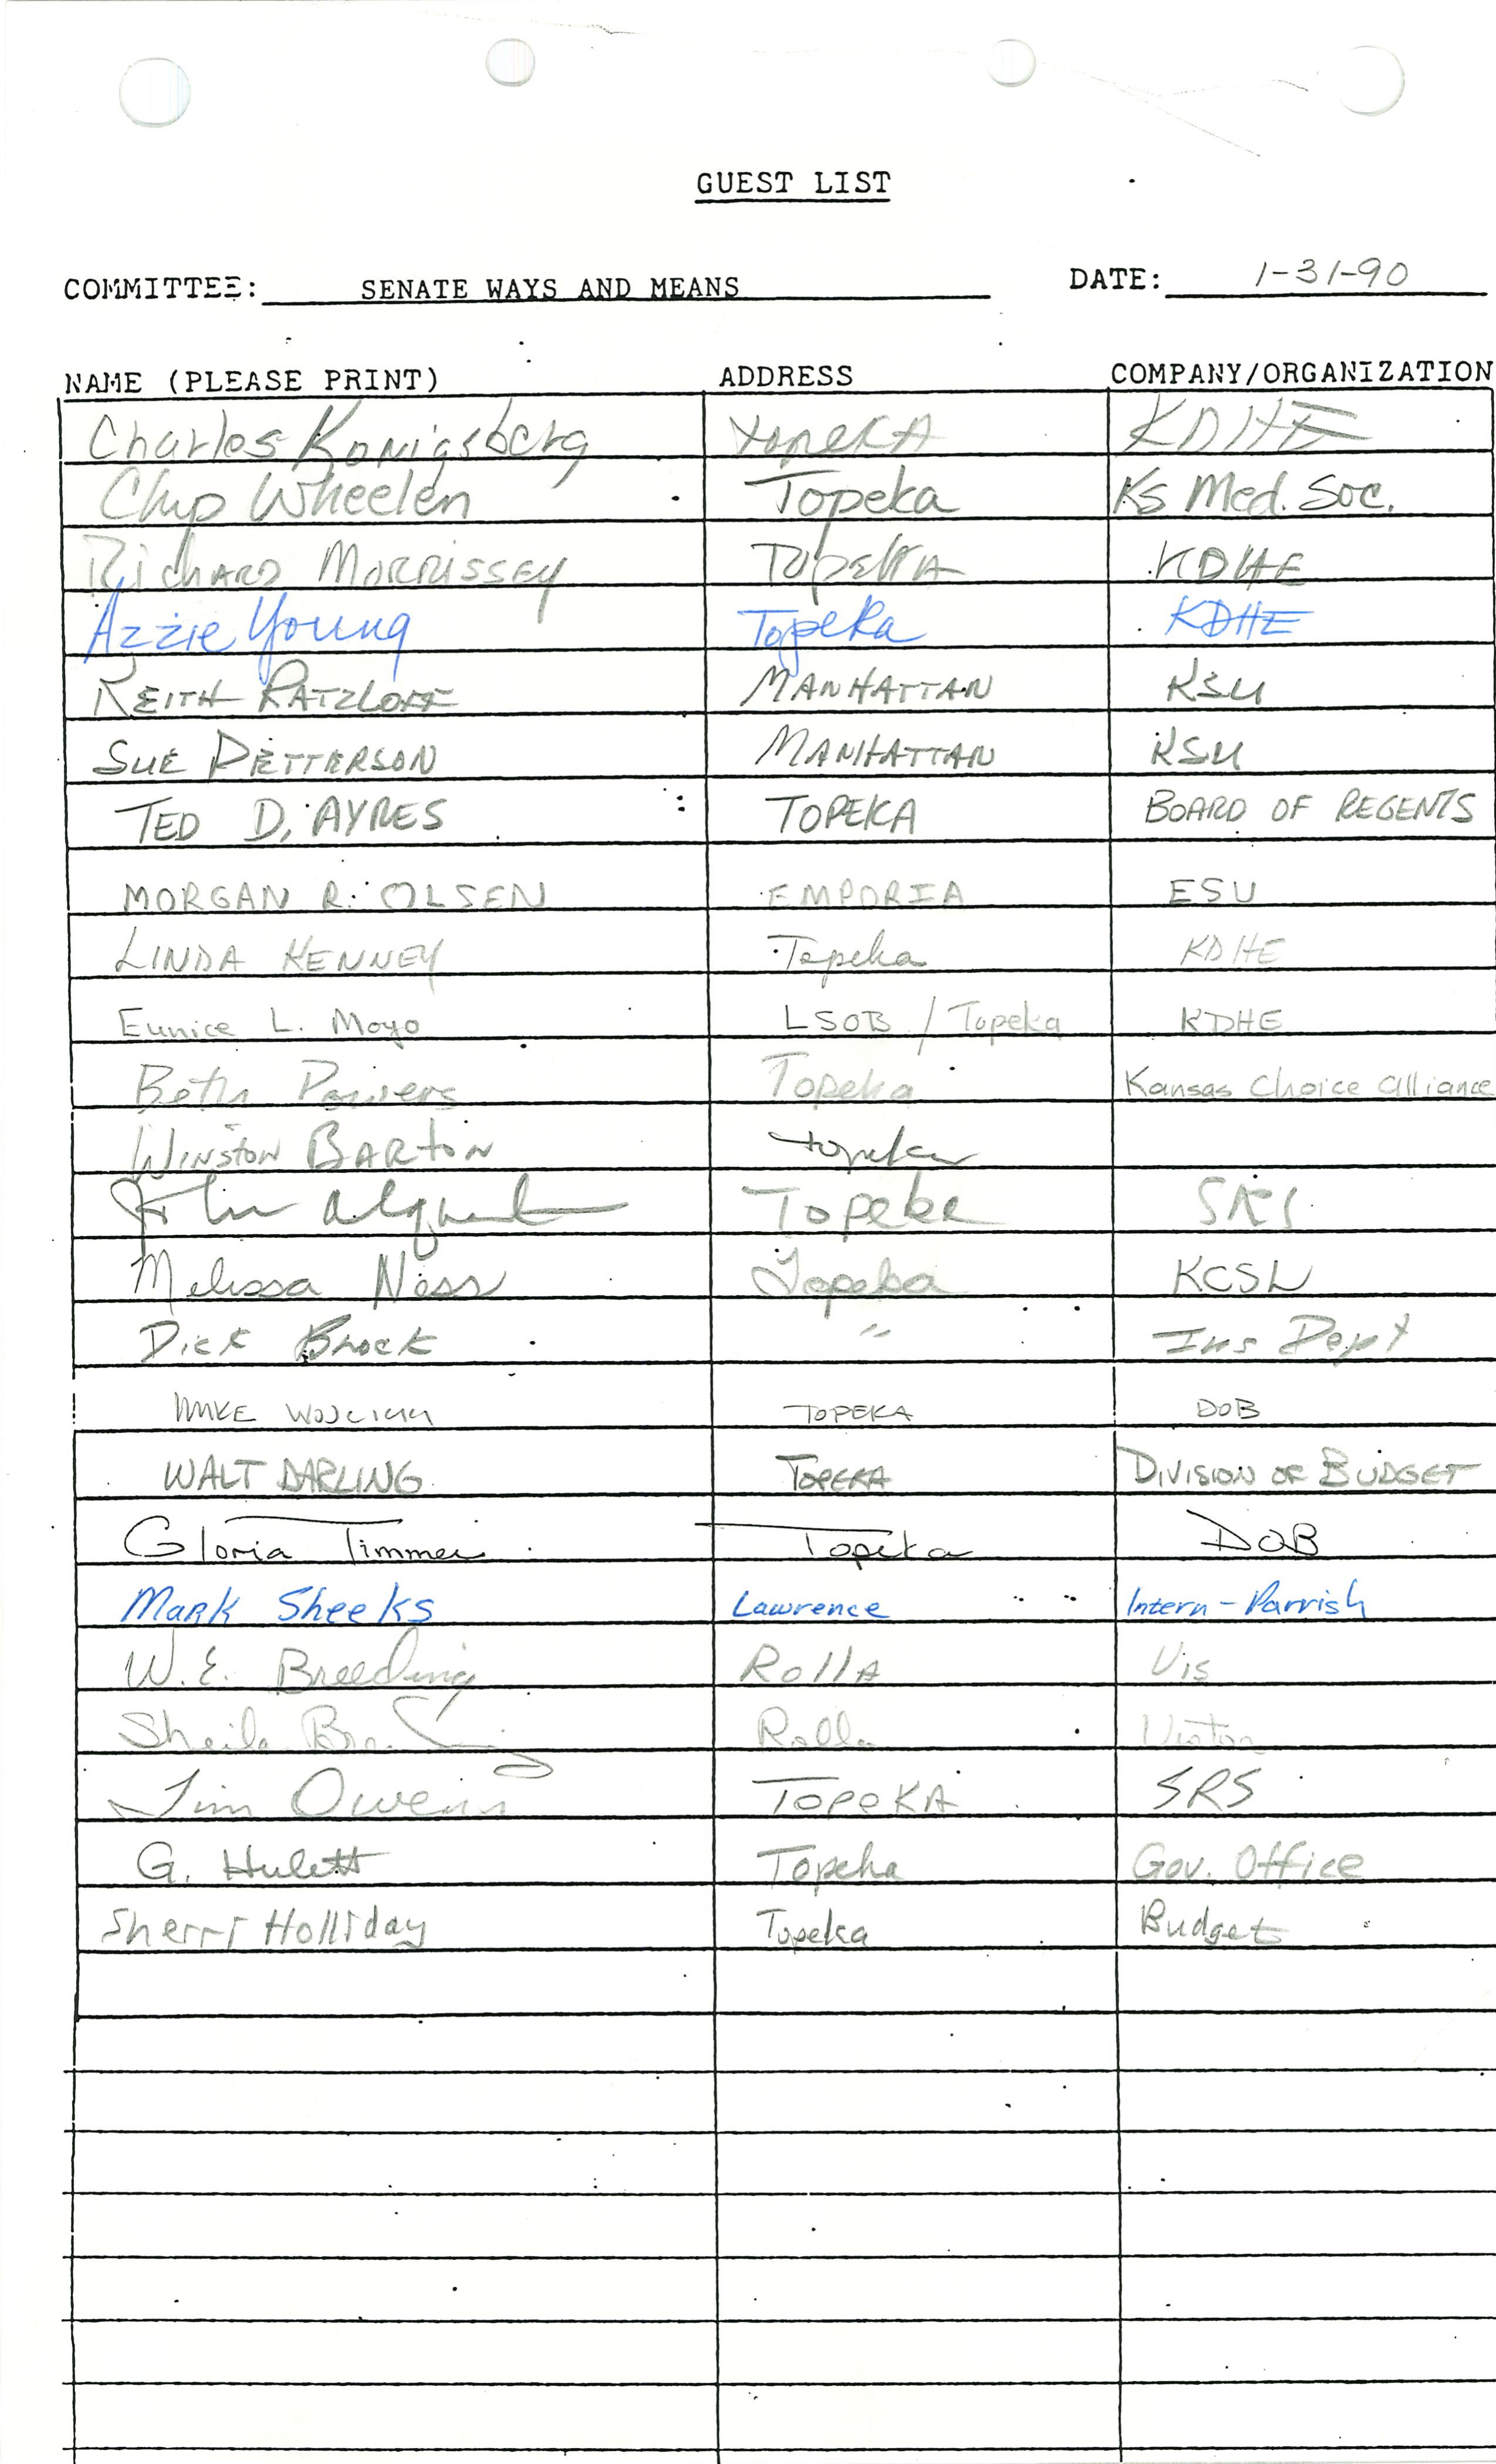 GUEST LIST
COMMITTEE: SENATE WAYS AND MEANS DATE: 1-31-90
NAME (PLEASE PRINT) ADDRESS COMPANY/ORGANIZATION
Charles Konigsberg Topeka KDHE
Chip Wheelen Topeka Ks Med. Soc.
Richard Morrissey Topeka KDHE
Azzie Young Topeka KDHE
KEITH RATZLOFF MANHATTAN KSU
SUE PETTERSON MANHATTAN KSU
TED D. AYRES TOPEKA BOARD OF REGENTS
MORGAN R. OLSEN EMPORIA ESU
LINDA KENNEY Topeka KDHE
Eunice L. Moyo LSOB / Topeka KDHE
Beth Powers Topeka Kansas Choice Alliance
WINSTON BARTON topeka
John Topeka SRS
Melissa Ness Topeka KCSL
Dick Brock " Ins Dept
MIKE TOPEKA DOB
WALT DARLING TOPEKA DIVISION OF BUDGET
Gloria Timmer Topeka DOB
Mark Sheeks Lawrence Intern - Parrish
W.E. Breeding Rolla Vis
Sheila Breeding Rolla Visitor
Jim Owens TOPEKA SRS
G. Hulett Topeka Gov. Office
Sherri Holliday Topeka Budget